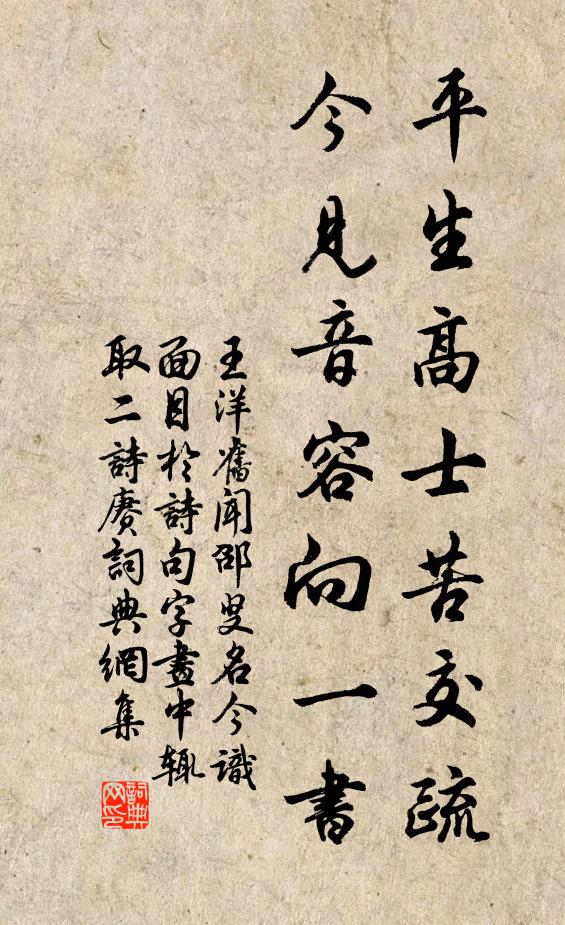 平生高士苦交疏
今見音容向一書
王洋舊聞邵叟名今識
面目於詩句字畫中輒
取二詩賡詞典網集
詞典
网印